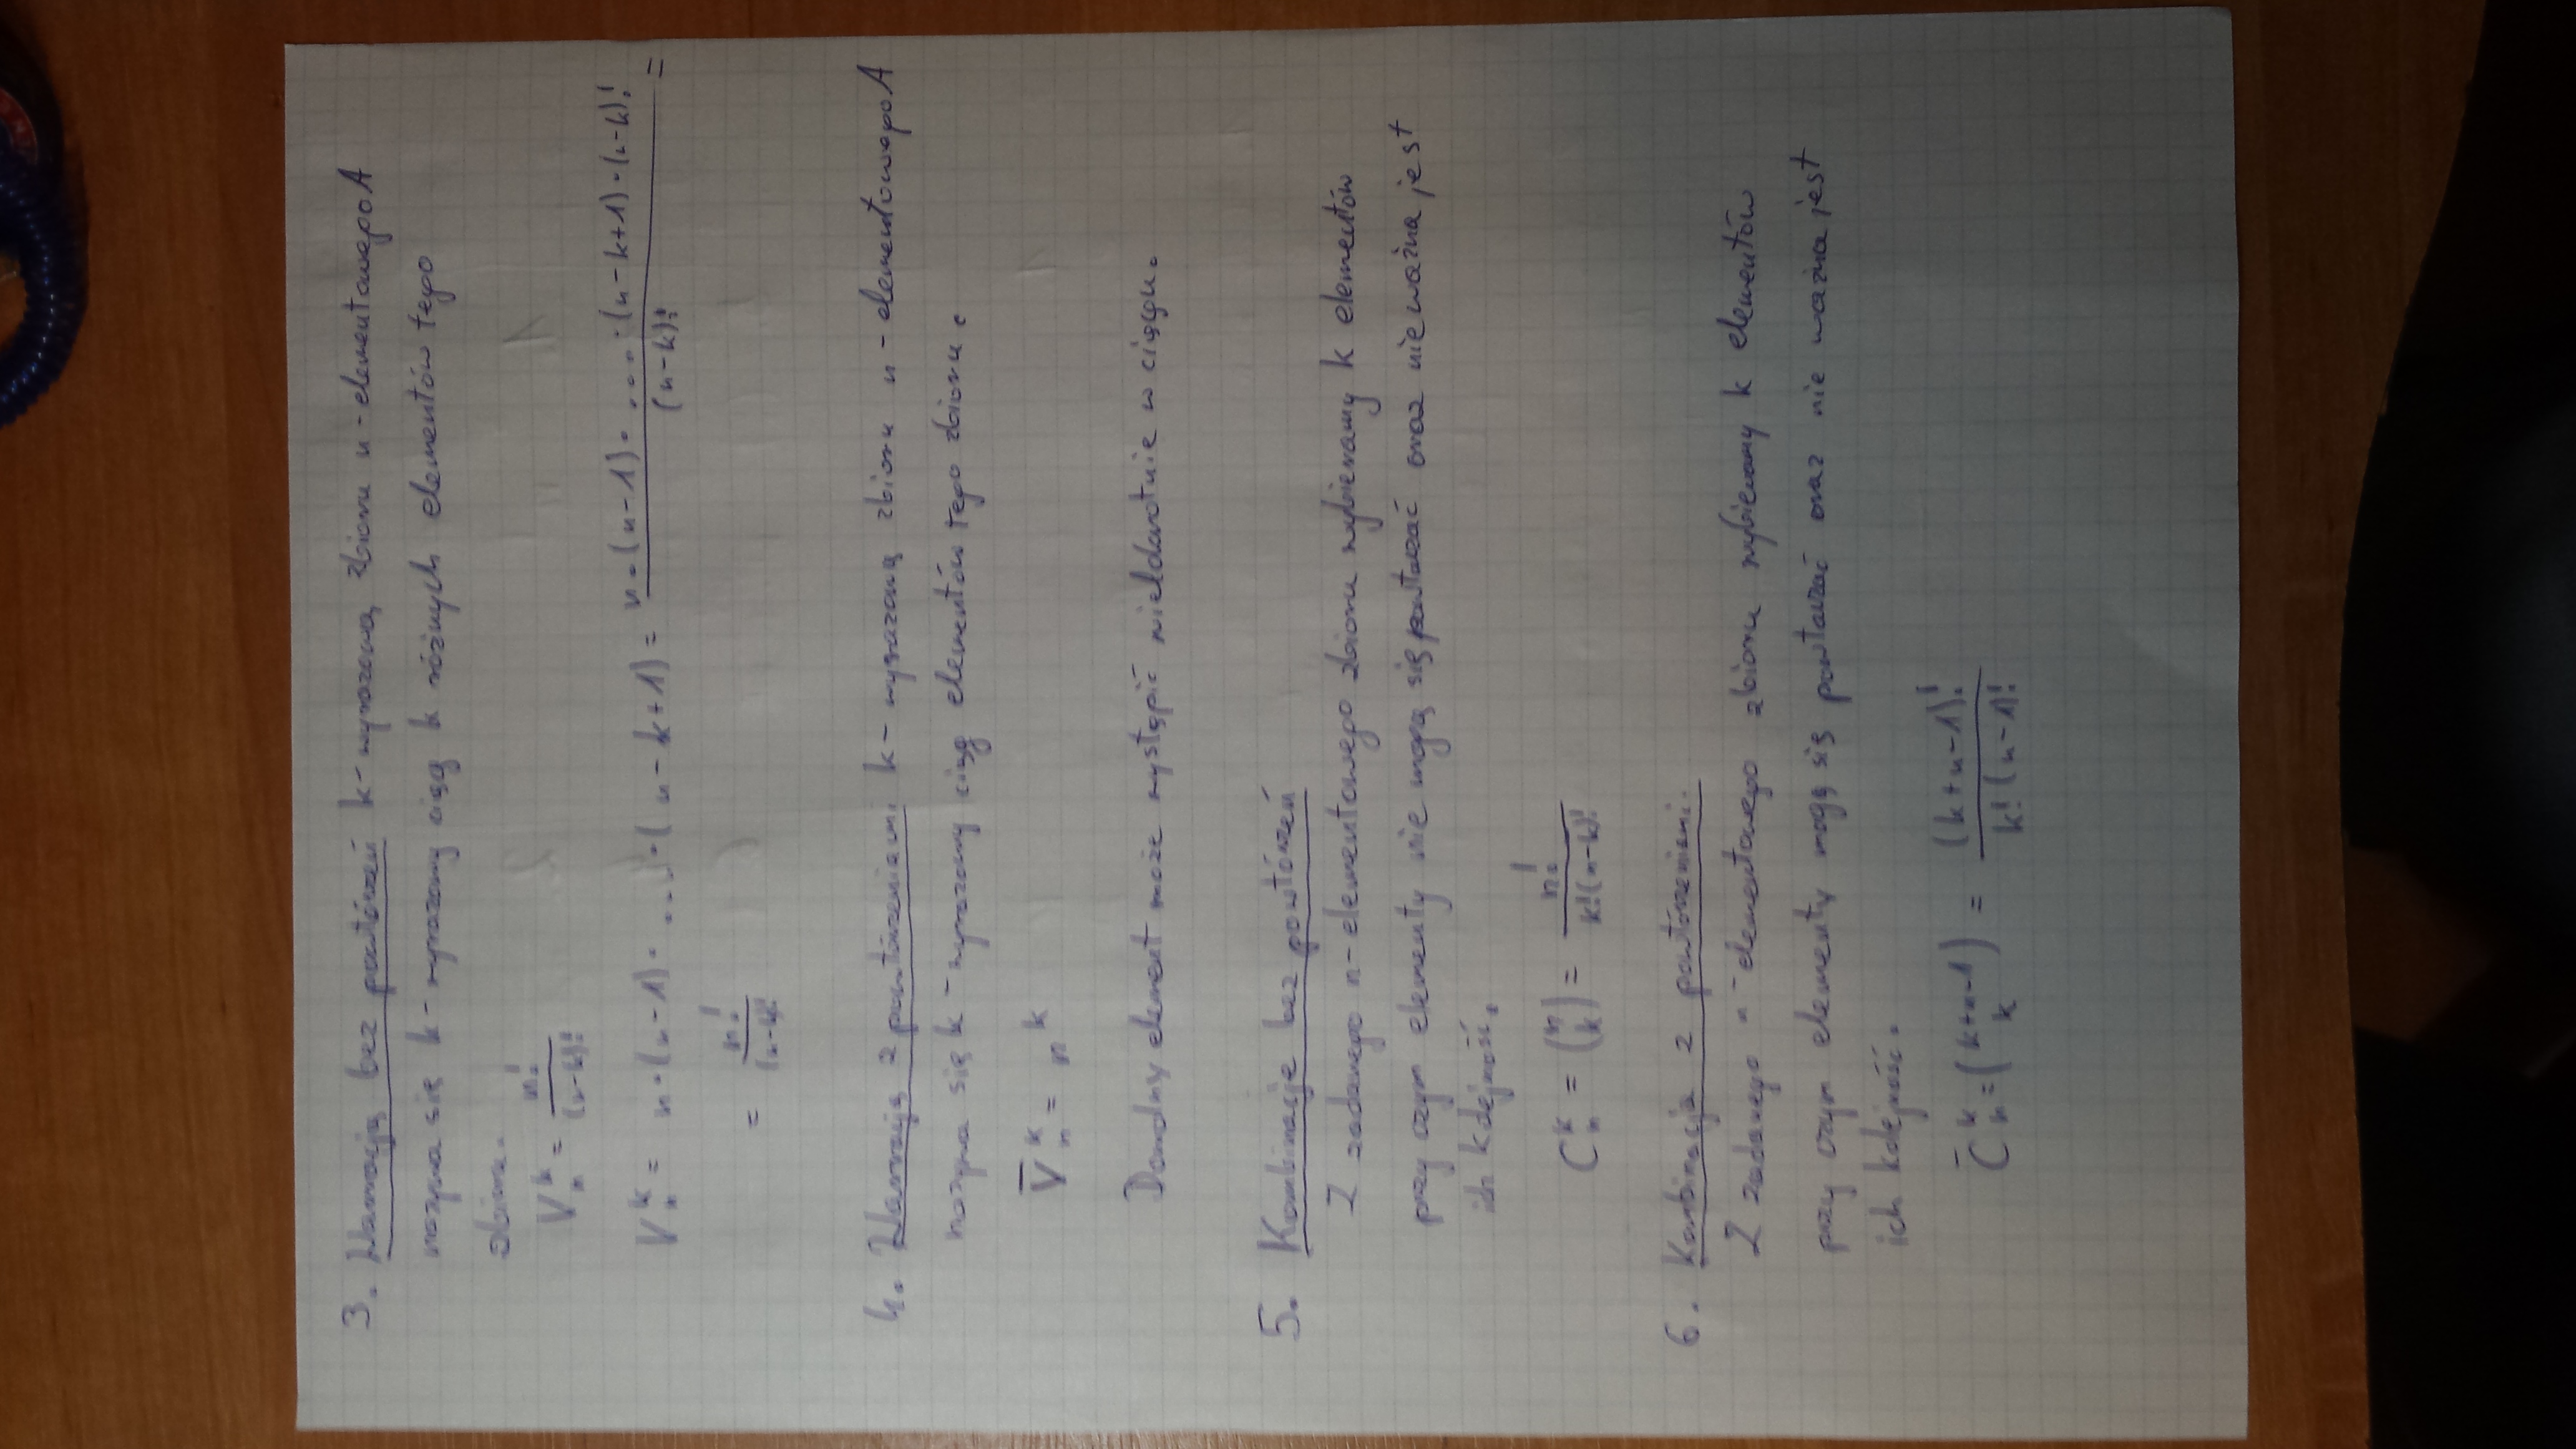 3. Wariacją bez powtórzeń k-wyrazową zbioru n-elementowego A
nazywa się k-wyrazowy ciąg k różnych elementów tego
zbioru.
V_n^k = n!/(n-k)!
V_n^k = n·(n-1)· ... ·(n-k+1) = n·(n-1)· .... ·(n-k+1)·(n-k)!/(n-k)! =
= n!/(n-k)!
4. Wariacją z powtórzeniami k-wyrazową zbioru n-elementowego A
nazywa się k-wyrazowy ciąg elementów tego zbioru.
V̅_n^k = n^k
Dowolny element może wystąpić wielokrotnie w ciągu.
5. Kombinacje bez powtórzeń
Z zadanego n-elementowego zbioru wybieramy k elementów
przy czym elementy nie mogą się powtarzać oraz nie ważna jest
ich kolejność.
C_n^k = (n k) = n!/k!(n-k)!
6. Kombinacja z powtórzeniami.
Z zadanego n-elementowego zbioru wybieramy k elementów
przy czym elementy mogą się powtarzać oraz nie ważna jest
ich kolejność.
C̅_n^k = (k+n-1 k) = (k+n-1)!/k!(n-1)!